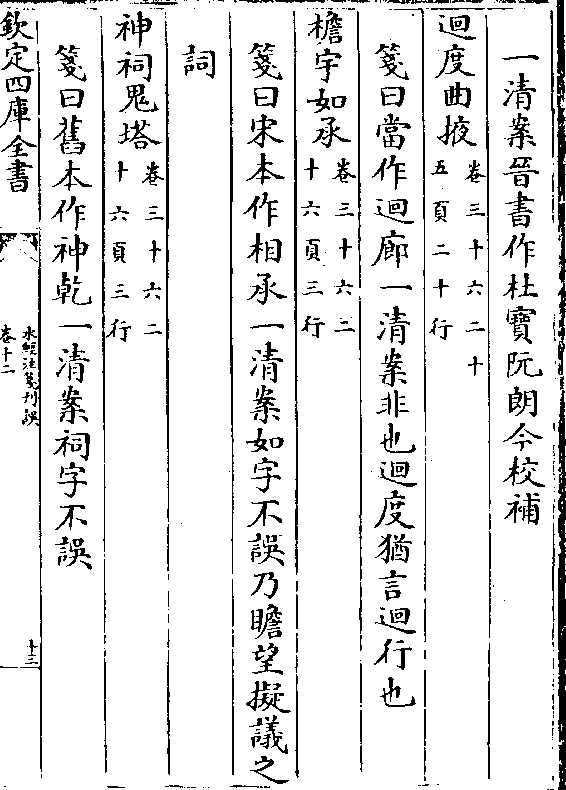 一清案晉書作杜寶阮朗今校補
迴度曲掖卷三十六二十五頁二十行
箋曰當作迴廊一清案非也迴度猶言迴行也
檐宇如承卷三十六二十六頁三行
箋曰宋本作相承一清案如字不誤乃瞻望擬議之
詞
神祠鬼塔卷三十六二十六頁三行
箋曰舊本作神乾一清案祠字不誤
欽定四庫全書
水經注箋刊誤
卷十二
十三